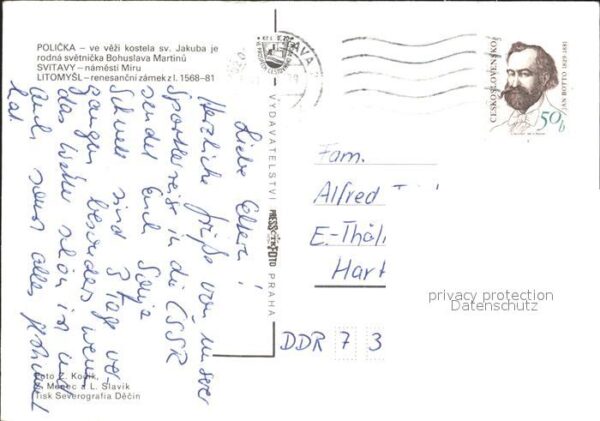 POLIČKA – ve věži kostela sv. Jakuba je
rodná světnička Bohuslava Martinů
SVITAVY – náměstí Míru
LITOMYŠL – renesanční zámek z l. 1568–81
Liebe Eltern!
Herzliche Grüße von unserer
Sportlerreise in die ČSSR
sendet Euch Sonja
Schnell sind 3 Tage ver-
gangen, besonders wenn
das Wetter schön ist und
auch sonst alles
hat.
Foto Z. Kodík,
Menec a L. Slavík
Tisk Severografia Děčín
VYDAVATELSTVÍ PRESSFOTO PRAHA
ČESKOSLOVENSKO
JÁN BOTTO 1829-1881
50h
Fam.
Alfred
E-Thäl
Hart
privacy protection
Datenschutz
DDR 7 3